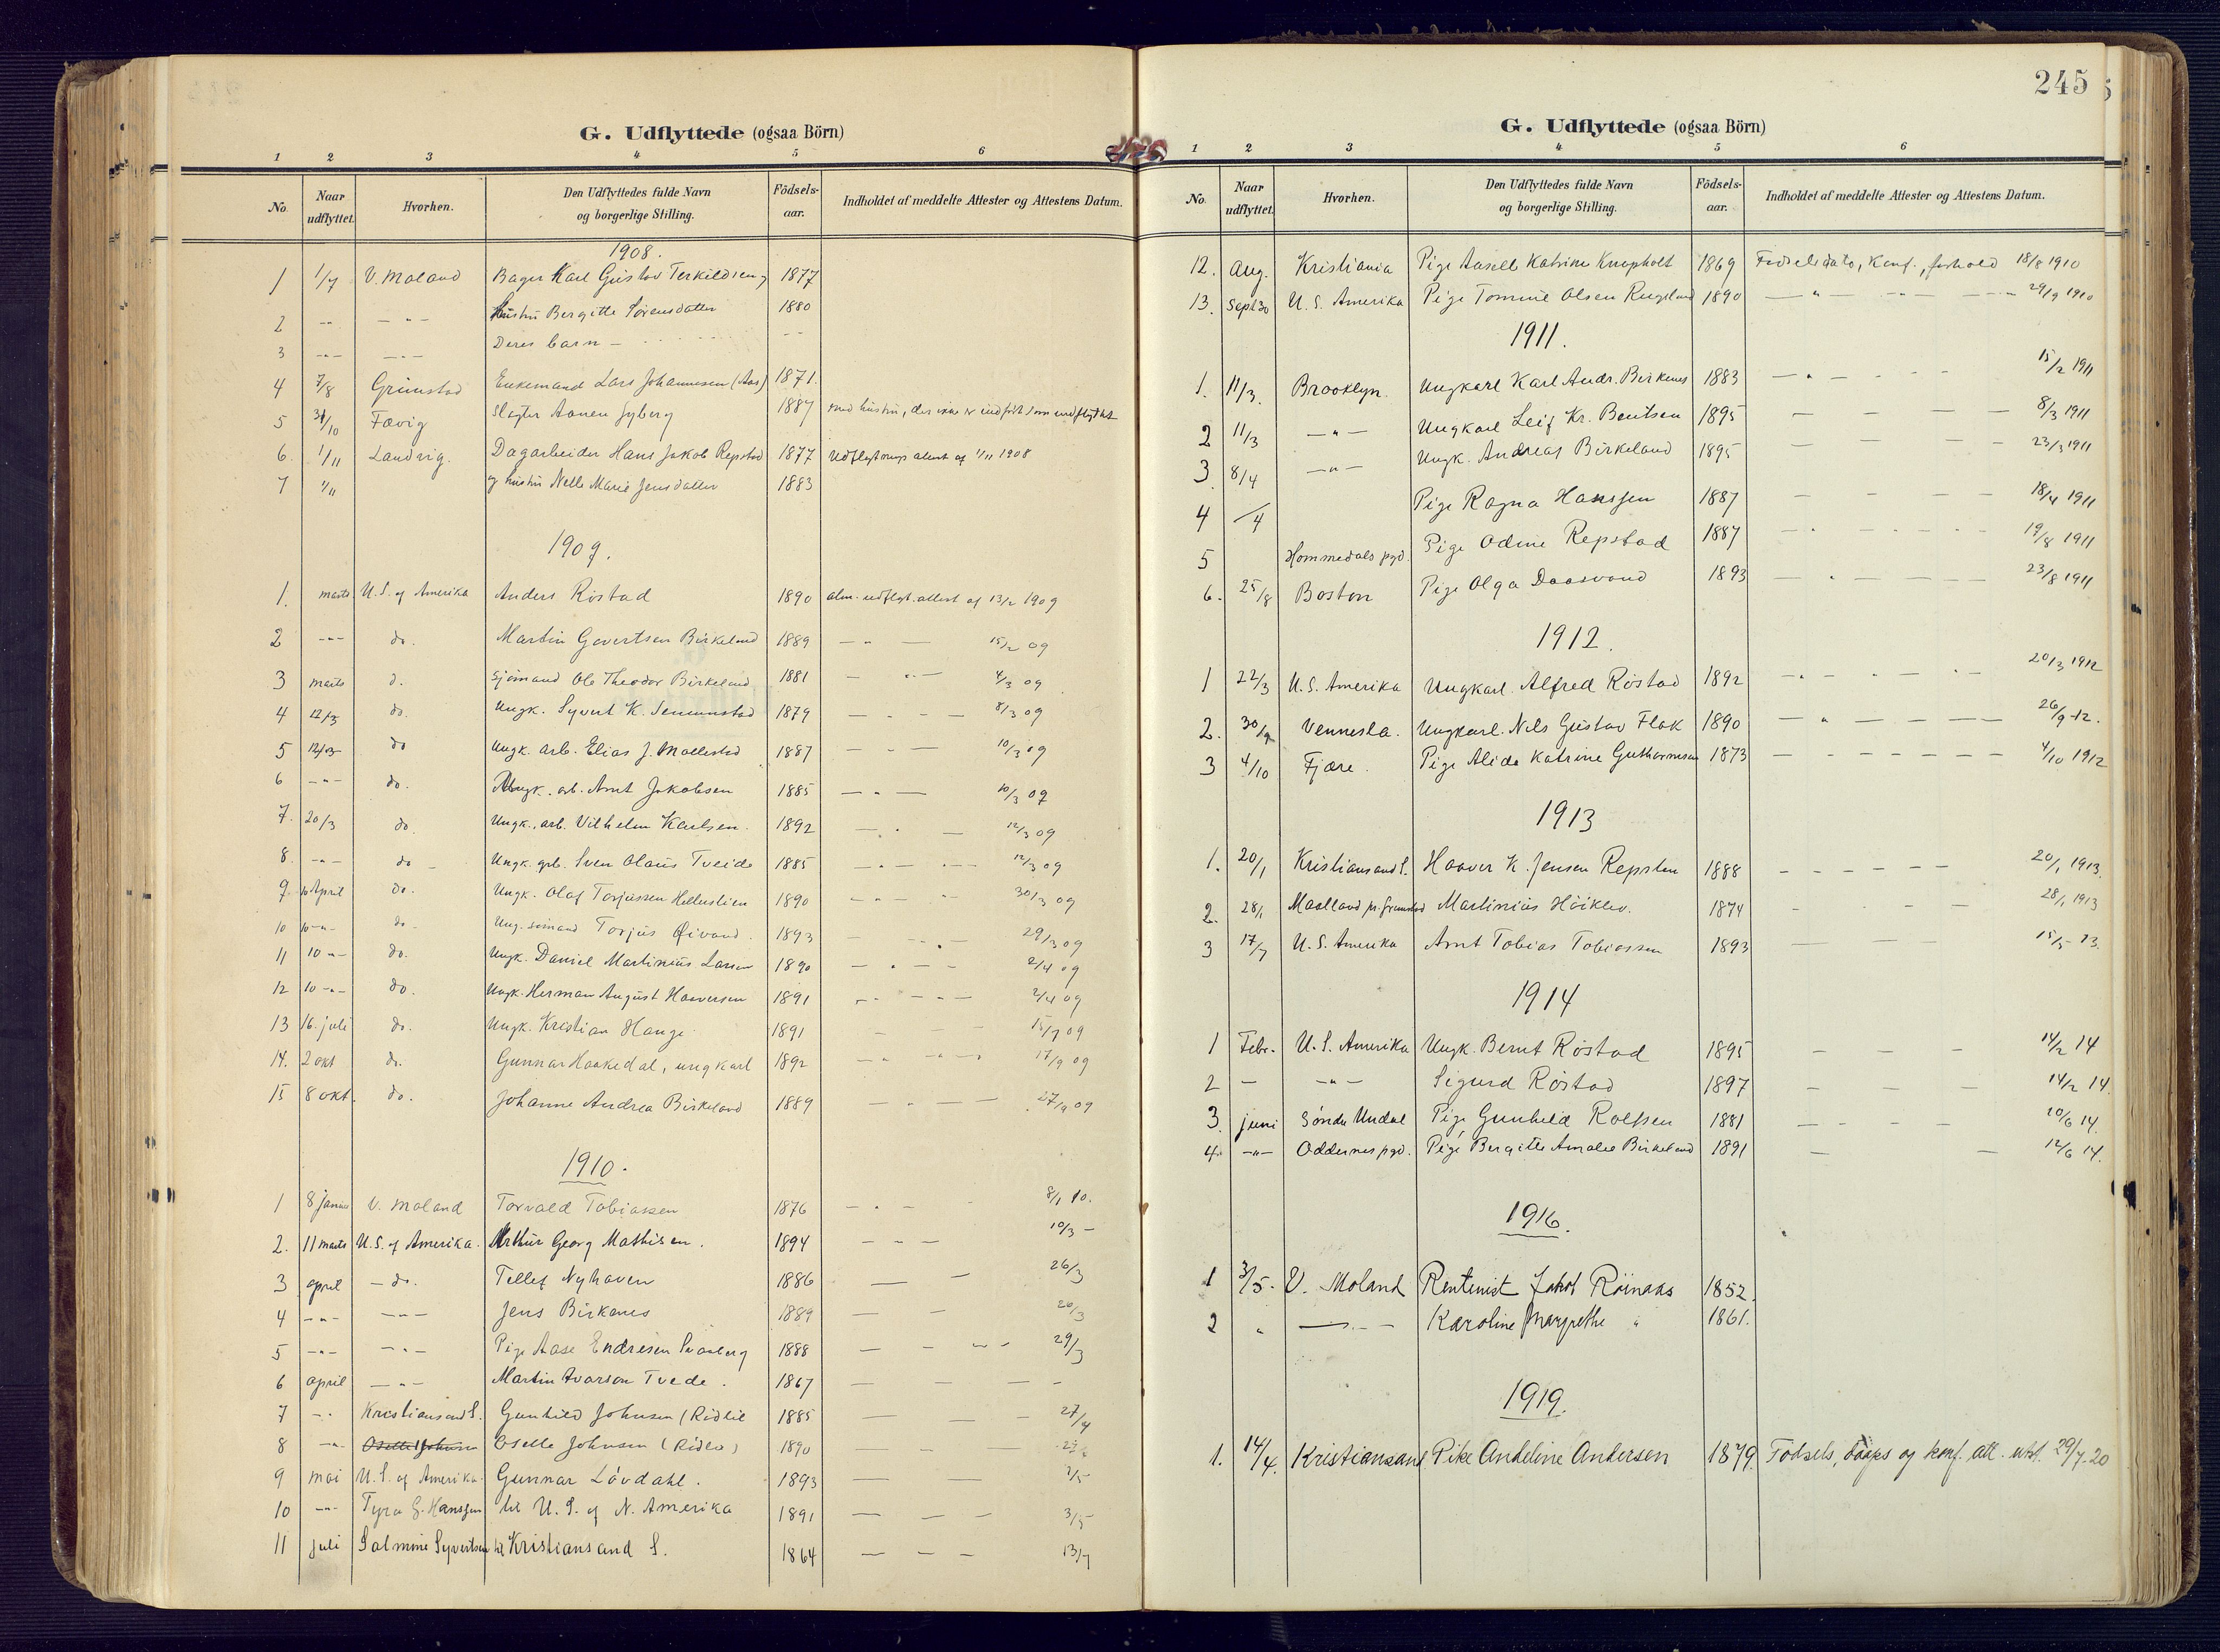 G. Udflyttede (ogsaa Börn)
1 2 3 4 5 6
No. Naar udflyttet. Hvorhen. Den Udflyttedes fulde Navn og borgerlige Stilling. Födsels-aar. Indholdet af meddelte Attester og Attestens Datum.
1908.
1 1/7 V. Moland Bager Karl Gustav Terkildsen 1877
2 -"- - " - Hustru Bergitte Sörensdatter 1880
3 -"- -"- Deres barn -
4 7/8 Grimstad Enkemand Lars Johannesen (Aas) 1871.
5 31/10 Fævig Slagter Aanen Gyberg 1887 med hustru, der ikke er indfört som
6. 1/11 Landvig. Dagarbeider Hans Jakob Repstad 1877 Udflytnings attest af 1/11 1908
7 1/11 og hustru Nelle Marie Jensdatter 1883
1909.
1. marts U.S. of Amerika Anders Röstad 1890 alm. udflyt. attest af 13/2 1909
2 -"- do. Martin Govertsen Birkeland 1889 - " - 15/2 09
3 marts d. Sjömand Ole Theodor Birkeland 1881 - " - 4/3 09
4 12/3 do. Ungk. Syvert K. Senumstad 1879 - - - - 8/3 09
5 12/03 do Ungk. arb. Elias J. Mollestad 1887 - " - 10/3 09
6 -"- do. Ungk. arb. Arnt Jakobsen 1885 - " - 10/3 09
7. 20/3 do. Ungk., arb. Vilhelm Karlsen. 1892 - " - 12/3 09
8. -"- do - Ungk. arb. Sven Olaus Tveide 1885 - " - - 12/3 09
9. 10 April do. Ungk. Olaf Torjussen Hellestlien 1890 - " - - 30/3 09
10 10 -"- do - Ung. sömand Torjus Öivand. 1893 - - " - 29/3 09
11 10 -"- do. Ungk. Daniel Martinius Larsen 1890 - " - - 2/4 09
12 10 -"- do. Ungk. Herman August Haaversen 1891 - " - - - 2/4 09
13 16. juli do. Ungk. Kristian Hauge 1891 - - 15/7 09
14. 2 okt do. Gunnar Haakedal, ungkarl 1892 - " - - 17/9 09
15 8 okt. do. Johanne Andrea Birkeland 1889 - " - - 27/9 09
1910.
1 8 januar V. Moland Torvald Tobiassen 1876 - " - 8/1 10.
2. 11 marts U.S. of Amerika. Arthur Georg Mathisen. 1894 - - - 10/3 -
3 april - do. Tellef Nyhaven 1886 - - 26/3
4 -"- -"- Jens Birkenes 1889 - - 20/3
5 -"- -"- Pige Aase Endresen Svaberg 1888 - - - - 29/3
6 april - " - Martin Ivarson Tvede. 1867 - - - -
7 - " Kristiansand S. Gunhild Johnsen (Ridlie 1885 - - - 27/4
8 -"- Oselle Johnsen Oselle Johnsen (Ridle) 1890 - -
9 mai U.S. of Amerika. Gunnar Lövdahl. 1893 - - 2/5
10 -"- Tyra G. Hanssen til U.S. of N. Amerika 1891 - - - 3/5
11 juli Salmine Syvertsen til Kristiansand S. 1864 - - - 13/7
245
G. Udflyttede (ogsaa Börn)
1 2 3 4 5 6
No. Naar udflyttet. Hvorhen. Den Udflyttedes fulde Navn og borgerlige Stilling. Födsels-aar. Indholdet af meddelte Attester og Attestens Datum.
12. Aug. Kristiania Pige Katrine Knapholt 1869 Födselsdato, Konf., forhold 18/8 1910
13. Sept 30 U.S. Amerika Pige Tomine Olsen Rugsland 1890 - " - - " - - - - 29/9 1910
1911.
1. 11/3. Brooklyn. Ungkarl Karl Andr. Birkenes 1883 - " - - - 15/2 1911
2 11/3 - " - Ungkarl Leif Kr. Bentsen 1895 - - - - 8/3 1911
3. 8/4 - " - Ungk. Andreas Birkeland 1895 - - - - 23/3 1911
4 /4 Pige Ragna Hanssen 1887 - - - - 18/4 1911
5 Hommedals pgd. Pige Odine Repstad 1887 - " - - - - 19/8 1911
6. 25/8 Boston Pige Olga Daasvand 1893 - " - - - 23/8 1911
1912.
1 22/3 U.S. Amerika Ungkarl. Alfred Röstad 1892 - " - - " - 20/3 1912
2. 30/9 Vennesla. Ungkarl. Nils Gustav Flak 1890 - " - - - - 26/9 -12.
3 4/10 Fjære. Pige Alida Katrine Guthormsen 1873 - - - - - - 4/10 1912
1913
1. 20/1 Kristiansand S. Haaver K. Jensen Repsten 1888 - - - - - 20/1 1913.
2. 28/1 Maalland pr. Grimstad Martinius Höiklev. 1874 - - - 28/1 1913
3 17/7 U.S. Amerika Arnt Tobias Tobiassen 1893 - - - 15/5- 13.
1914
1 Febr. U.S. Amerika Ungk. Bernt Röstad 1895 - - - 14/2 14
2 - - " - Sigurd Röstad 1897 - - - 14/2 14.
3. juni Söndre Undal Pige Gunhild Rolfsen 1881 - - - - 10/6 14.
4. -"- Oddernes pgd. Pige Bergitte Amalie Birkeland 1891 - - 12/6 14.
1916.
1 3/5- V. Moland Rentenist Jakob Röinaas 1852.
2 " - " - - Karoline Margrethe " 1861.
1919.
1. 14/4. Kristiansand Pike Andeline Andersen 1879. Födsels, daaps og konf. att. utst. 29/7.20